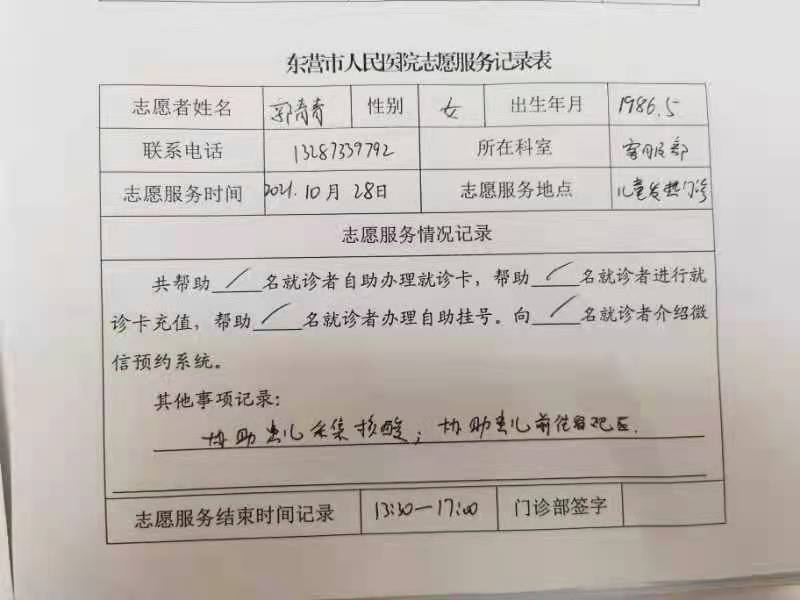 东营市人民医院志愿服务记录表
志愿者姓名 郭青青 性别 女 出生年月 1986.5
联系电话 13287339792 所在科室 客服部
志愿服务时间 2021.10月28日 志愿服务地点 儿童发热门诊
志愿服务情况记录
共帮助/名就诊者自助办理就诊卡，帮助/名就诊者进行就
诊卡充值，帮助/名就诊者办理自助挂号。向/名就诊者介绍微
信预约系统。
其他事项记录：
协助患儿采集核酸；协助患儿前往留观区.
志愿服务结束时间记录 13:30—17:00 门诊部签字